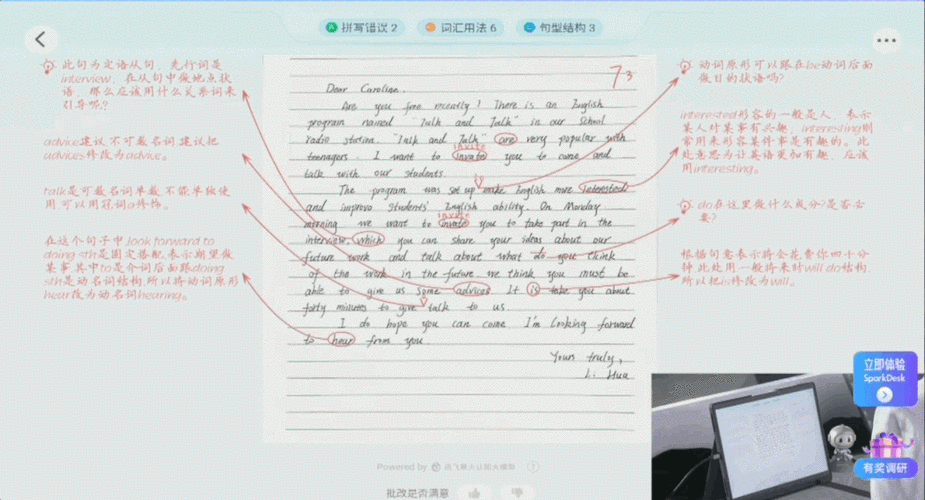 拼写错误 2
词汇用法 6
句型结构 3
此句为定语从句，先行词是
interview，在从句中做地点状
语，那么应该用什么关系词来
引导呢？
advice建议 不可数名词 建议把
advices修改为advice。
talk是可数名词单数 不能单独使
用 可以用冠词a修饰。
在这个句子中,look forward to
doing sth是固定搭配,表示期望做
某事,其中to是介词后面跟doing
sth是动名词结构,所以将动词原形
hear改为动名词hearing。
73
Dear Caroline,
Are you free recently? There is an English
program named "Talk and Talk" in our School
radio station. "Talk and Talk" are very popular with
invite
teenagers. I want to invate you to come and
talk with our students.
The program was set up make English more interested
and improve students' English ability. On Monday
invite
morning we want to invate you to take part in the
interview, which you can share your ideas about our
future work and talk about what do you think
of the work in the future. we think you must be
able to give us some advices. It is take you about
forty minutes to give talk to us.
I do hope you can come. I'm looking forward
to hear from you
Yours truly,
Li Hua
动词原形可以跟在be动词后面
做目的状语吗?
interested形容的一般是人，表示
某人对某事有兴趣，interesting则
常用来形容某件事是有趣的。此
处意思为让英语更加有趣，应该
用interesting。
do在这里做什么成分?是否需
要?
根据句意表示将会花费你四十分
钟,此处用一般将来时will do结构
所以把is修改为will。
立即体验
SparkDesk
有奖调研
Powered by 讯飞星火认知大模型
批改是否满意